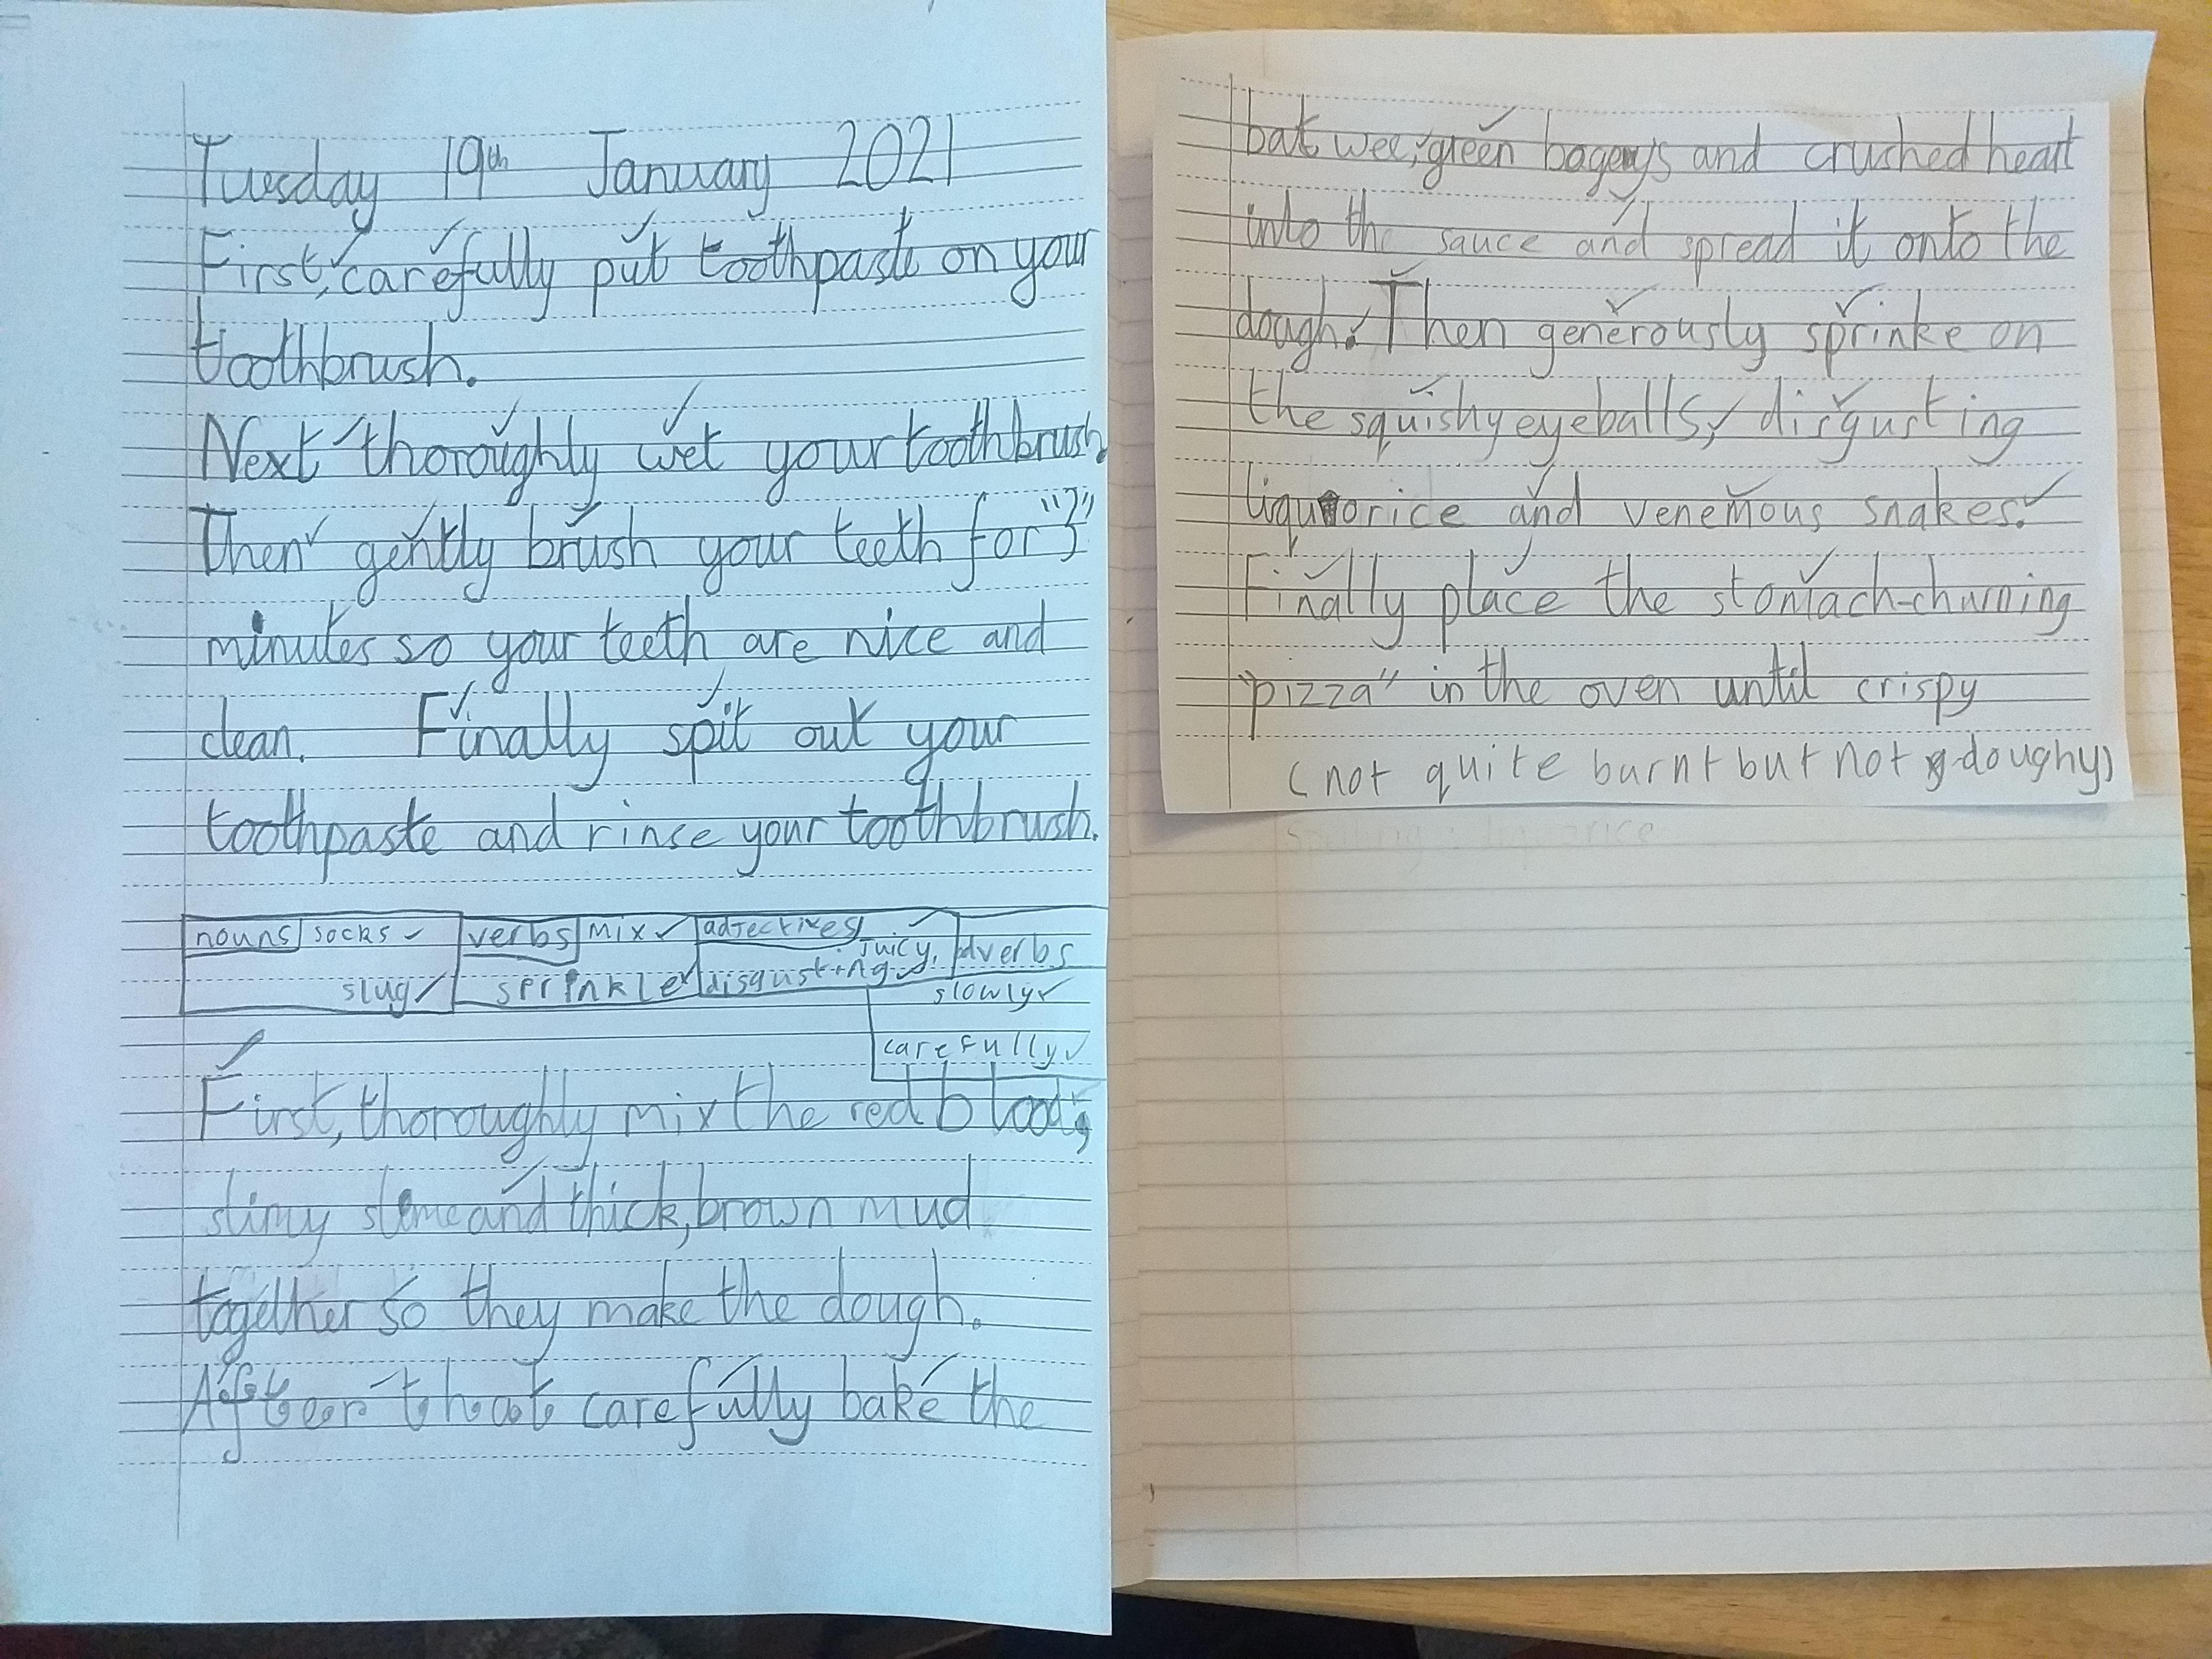 Tuesday 19th January 2021
First, carefully put toothpaste on your
toothbrush.
Next thoroughly wet your toothbrush.
Then gently brush your teeth for "3"
minutes so your teeth are nice and
clean. Finally spit out your
toothpaste and rinse your toothbrush.
nouns socks verbs mix adjectives
juicy, adverbs
slug sprinkle disgusting
slowly
carefully
First, thoroughly mix the red blood,
slimy slime and thick, brown mud
together so they make the dough.
After that carefully bake the
bat wee, green bogeys and crushed heart
into the sauce and spread it onto the
dough. Then generously sprinke on
the squishy eyeballs, disgusting
liquorice and venemous snakes.
Finally place the stomach-churning
"pizza" in the oven until crispy
(not quite burnt but not doughy)